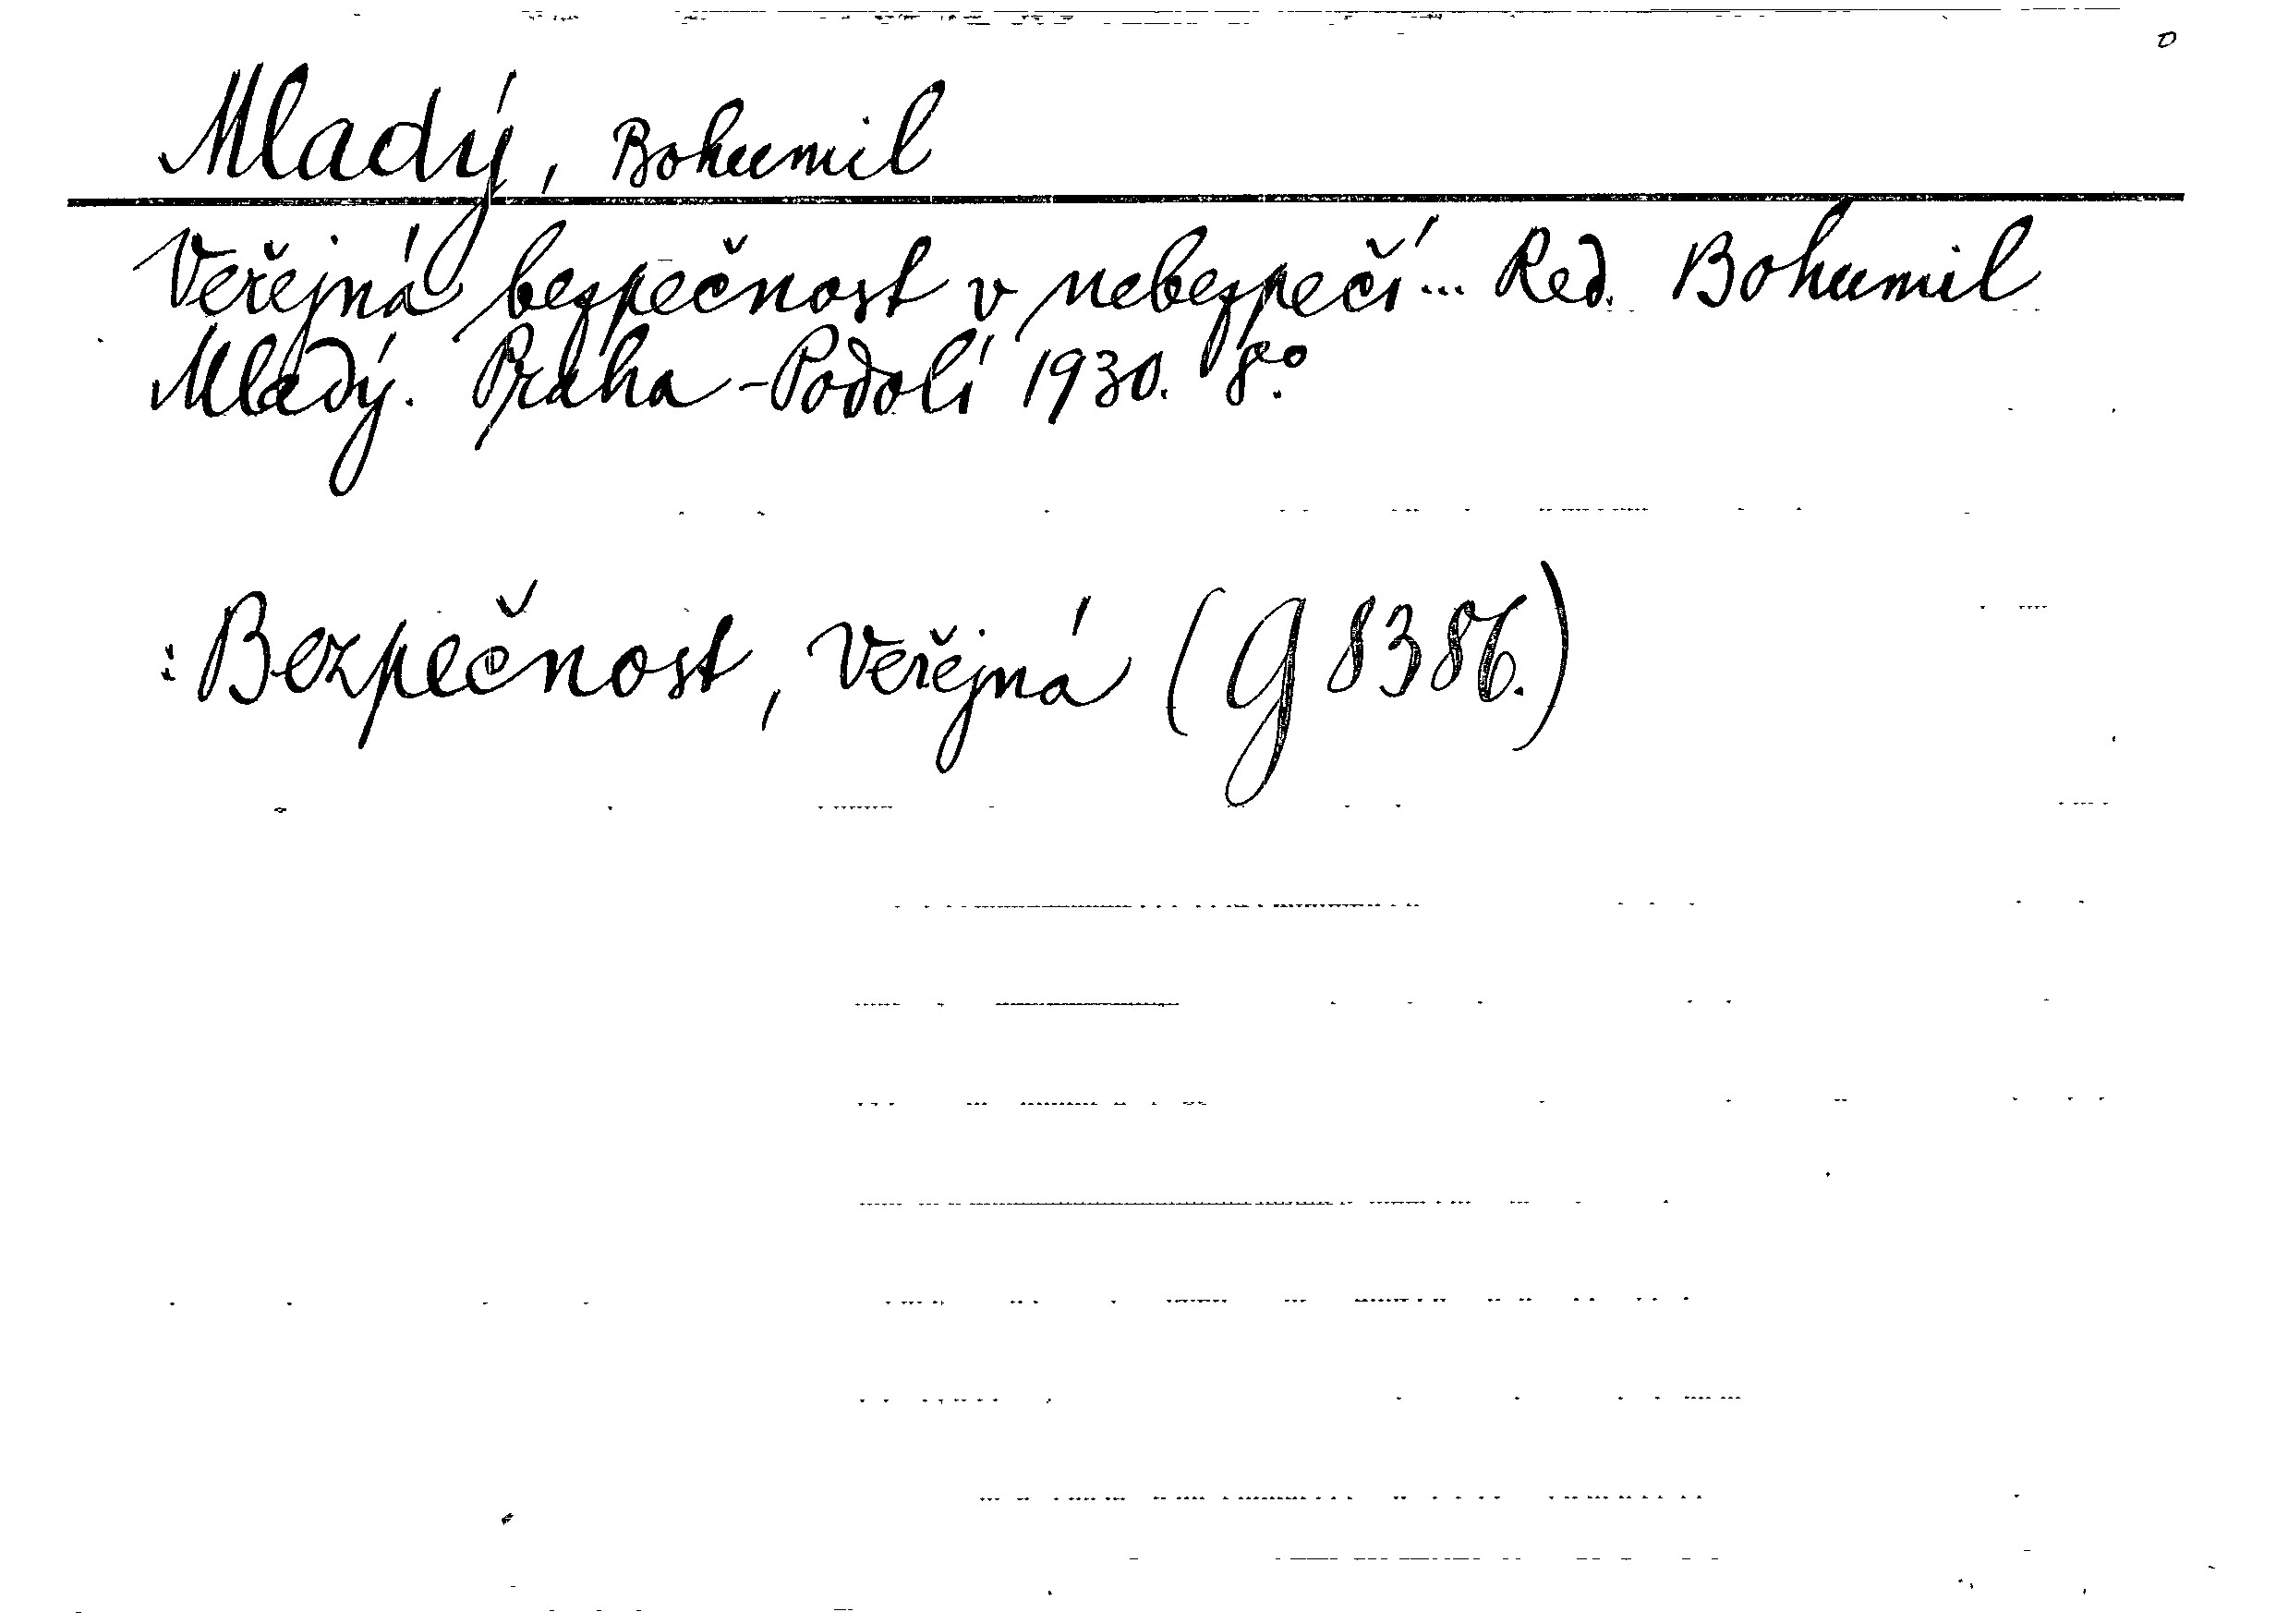 Mladý, Bohumil
Veřejná bezpečnost v nebezpečí... Red. Bohumil
Mladý. Praha-Podolí 1930. 8.°
: Bezpečnost, Veřejná (G 8386.)